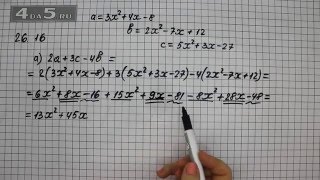 4DA5.RU
a=3x²+4x-8
26.16
b=2x²-7x+12
c=5x²+3x-27
a) 2a+3c-4b=
=2(3x²+4x-8)+3(5x²+3x-27)-4(2x²-7x+12)=
=6x²+8x-16+15x²+9x-81-8x²+28x-48=
=13x²+45x